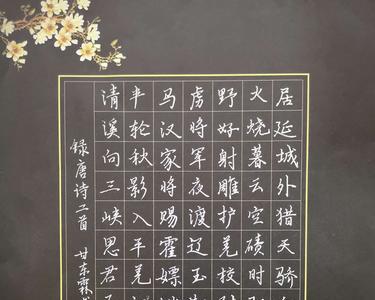 居延城外猎天骄
火烧暮云空碛时
野好射雕护羌校
虏将军夜渡辽玉
马汉家将赐霍嫖
半轮秋影入平羌
清溪向三峡思君
录唐诗二首 甘东霖